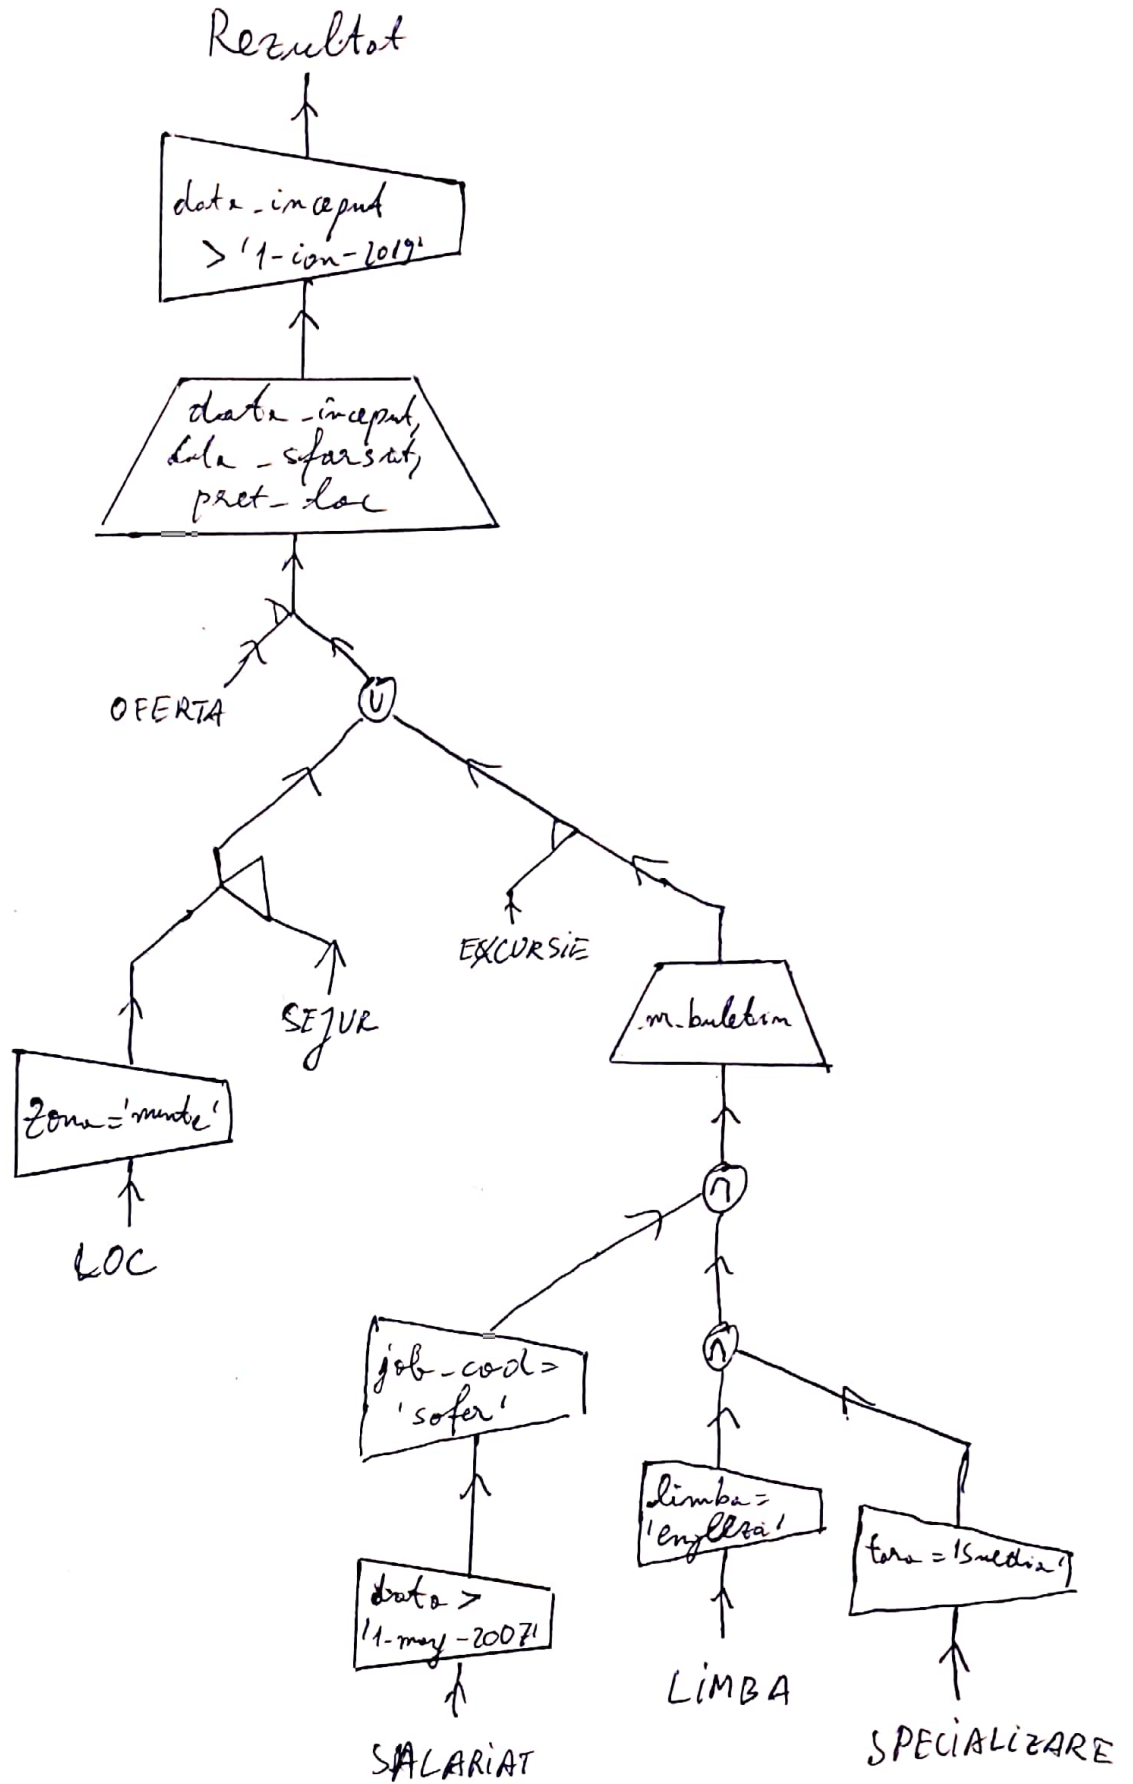 Rezultat
data_inceput
> '1-ian-2019'
data_inceput,
data_sfarsit,
pret_loc
OFERTA
U
EXCURSIE
SEJUR
n_buletin
Zona='munte'
∩
LOC
job_cod=
'sofer'
∩
limba=
'engleza'
tara='Suedia'
data >
'1-may-2007'
LIMBA
SPECIALIZARE
SALARIAT